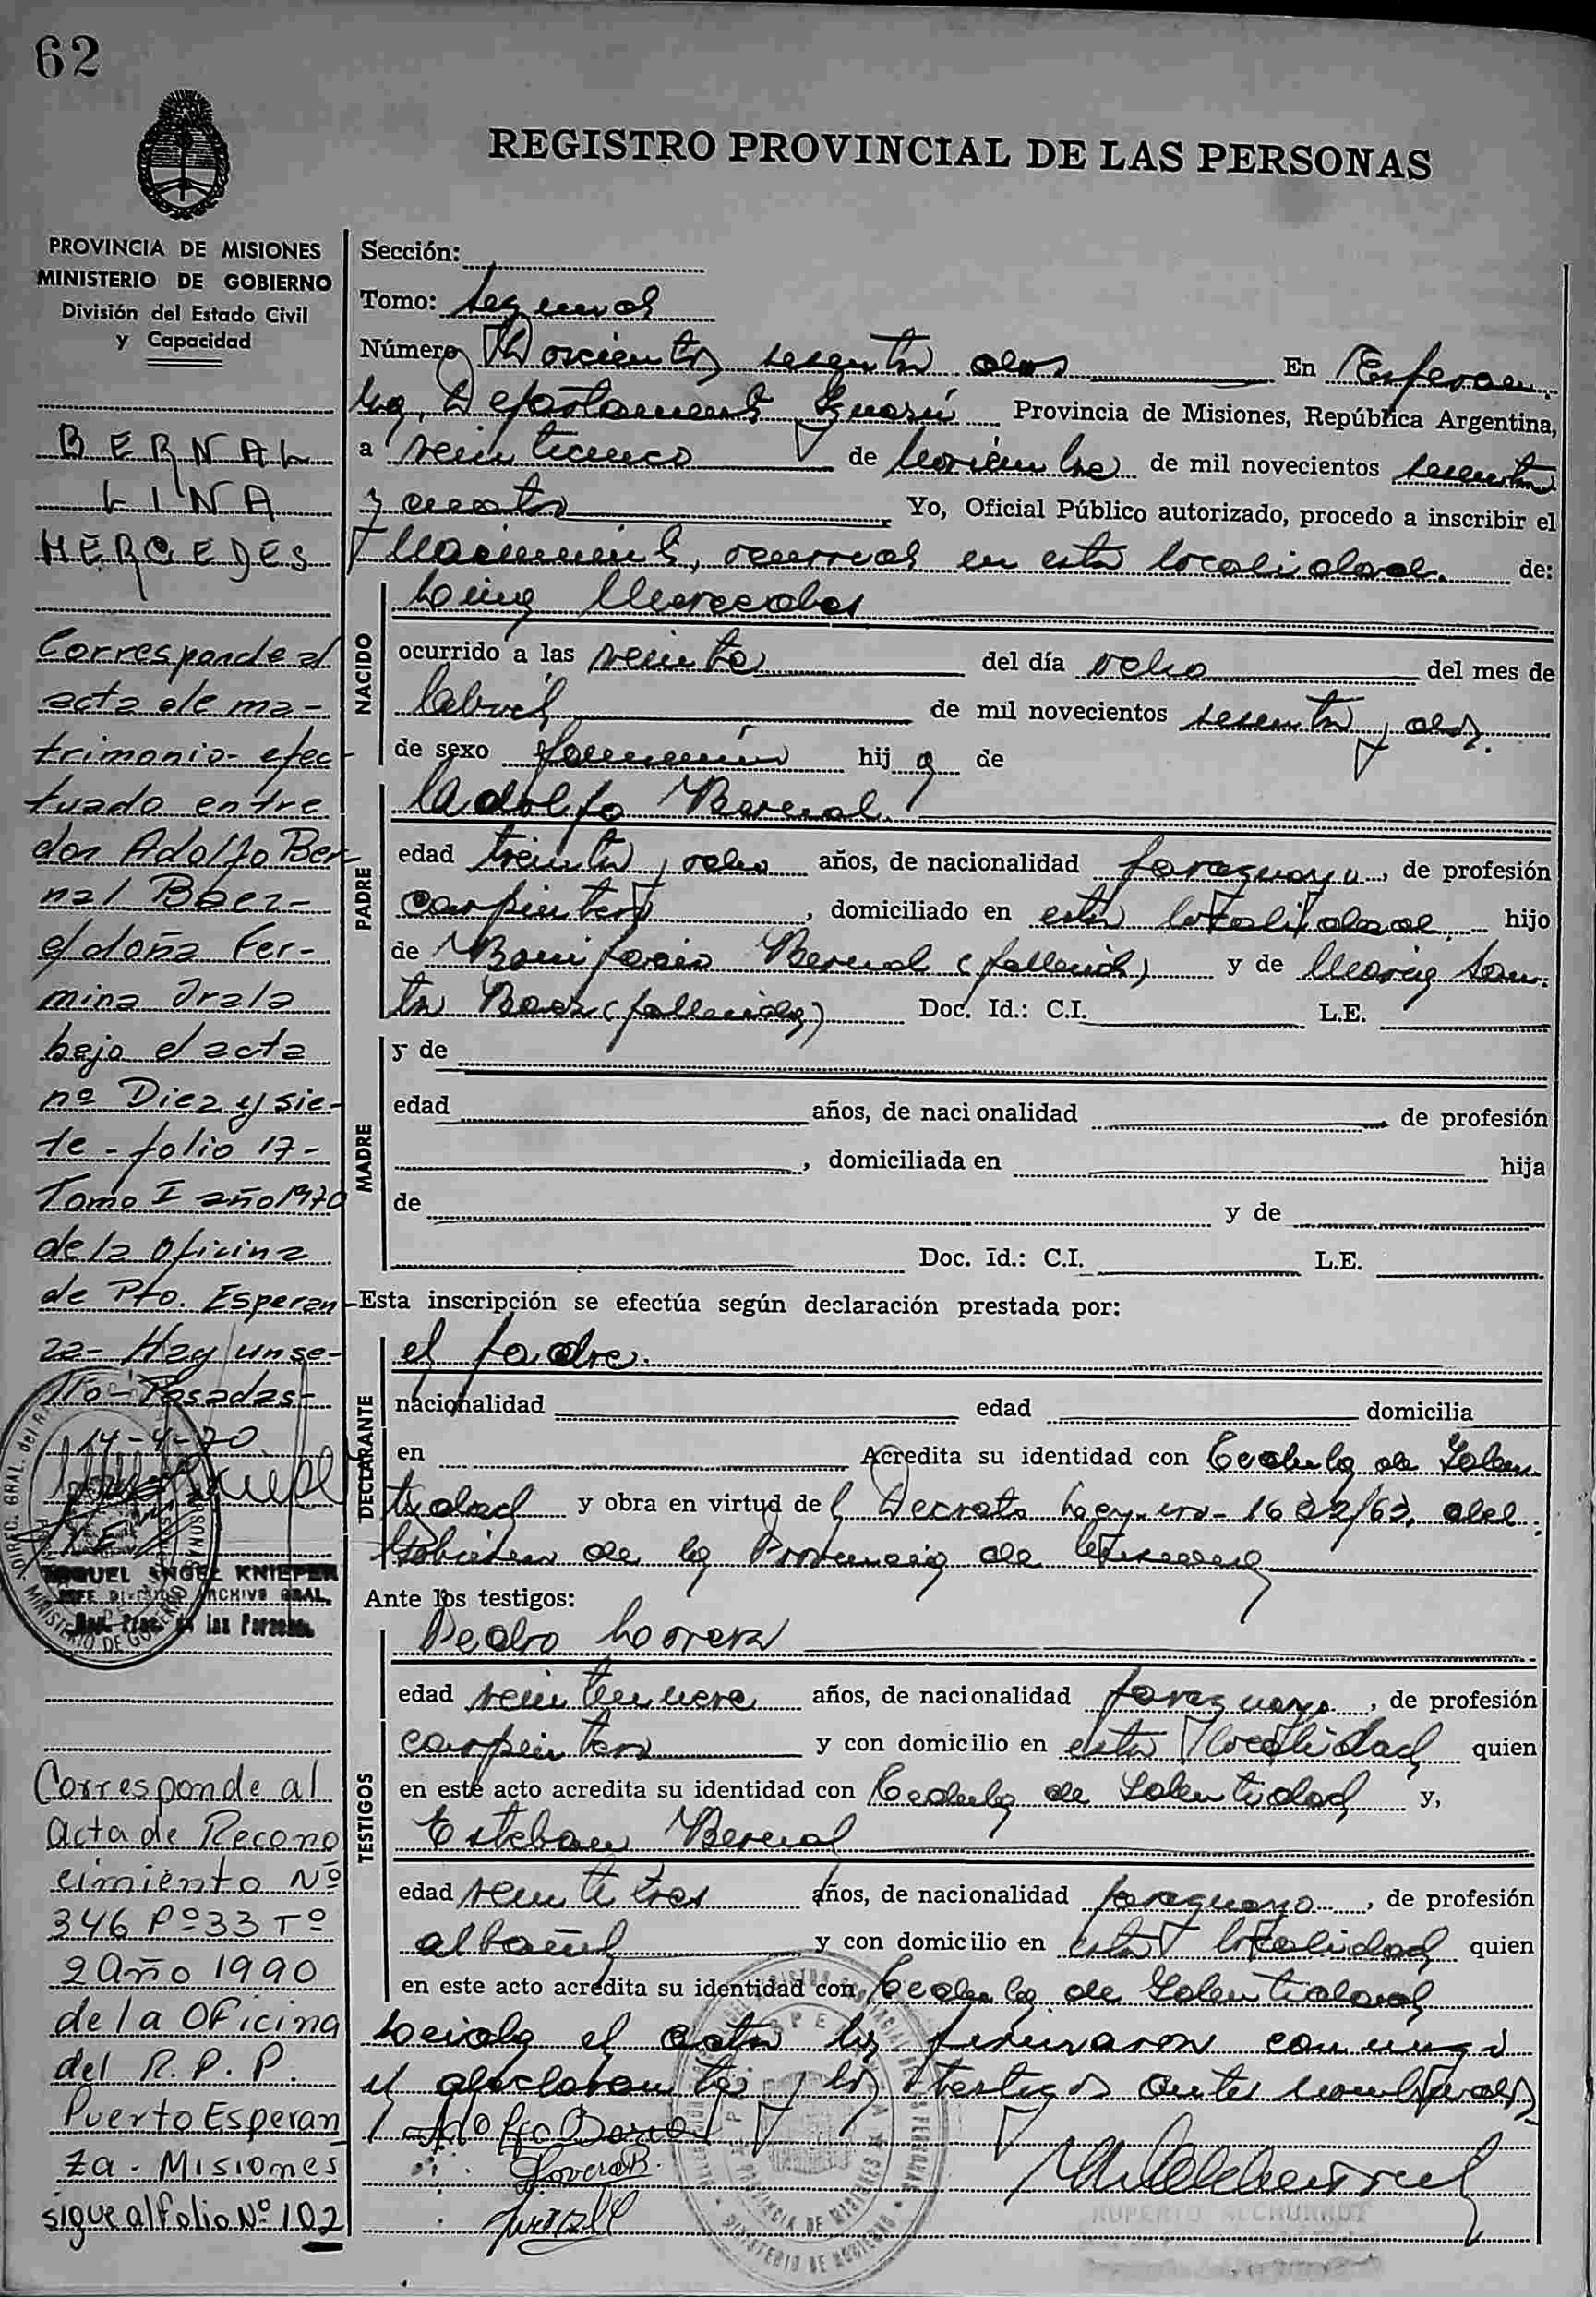 62
REGISTRO PROVINCIAL DE LAS PERSONAS
PROVINCIA DE MISIONES
MINISTERIO DE GOBIERNO
División del Estado Civil
y Capacidad
BERNAL
LINA
MERCEDES
Corresponde al
acta de ma-
trimonio- efec-
tuado entre
don Adolfo Ber-
nal Báez-
y doña Fer-
mina Irala
bajo el acta
nº Diez y sie-
te - folio 17-
Tomo I año 1970
de la Oficina
de Pto. Esperan-
za- Hay un se-
llo- Posadas-
14-4-70
MIGUEL ANGEL KNIEPER
ARCHIVO GRAL.
de las Personas
DIREC. GRAL. del R.
MINISTERIO DE GOBIERNO
Corresponde al
acta de Recono
cimiento Nº
346 Fº 33 Tº
2 Año 1990
de la Oficina
del R. P. P.
Puerto Esperan
za. Misiones
sigue al folio Nº 102
Sección:
Tomo: Segundo
Número Doscientos sesenta dos En Esperan-
za, Departamento Iguazú Provincia de Misiones, República Argentina,
a veinticinco de noviembre de mil novecientos sesenta
y cuatro Yo, Oficial Público autorizado, procedo a inscribir el
Nacimiento, ocurrido en esta localidad. de:
NACIDO
Lina Mercedes
ocurrido a las veinte del día ocho del mes de
abril de mil novecientos sesenta y dos.
de sexo femenino hij a de
PADRE
Adolfo Bernal.
edad treinta y ocho años, de nacionalidad paraguaya, de profesión
carpintero, domiciliado en esta localidad. hijo
de Bonifacio Bernal (fallecido) y de María San-
ta Baez (fallecida) Doc. Id.: C.I. L.E.
MADRE
y de
edad años, de nacionalidad de profesión
, domiciliada en hija
de y de
Doc. Id.: C.I. L.E.
Esta inscripción se efectúa según declaración prestada por:
DECLARANTE
el padre.
nacionalidad edad domicilia
en Acredita su identidad con Cedula de Iden-
tidad y obra en virtud del Decreto Ley-nro- 1622/63, del
Gobierno de la Provincia de Misiones
Ante los testigos:
TESTIGOS
Pedro Lovera
edad veintinueve años, de nacionalidad paraguayo, de profesión
carpintero y con domicilio en esta localidad, quien
en este acto acredita su identidad con Cedula de Identidad y,
Esteban Bernal
edad veintitres años, de nacionalidad paraguayo, de profesión
albañil y con domicilio en esta localidad quien
en este acto acredita su identidad con Cedula de Identidad
Leida el acta la firmaron conmigo
el declarante y los testigos antes nombrados
Adolfo Bernal
Lovera
PROVINCIA DE MISIONES
MINISTERIO DE GOBIERNO
RUPERTO